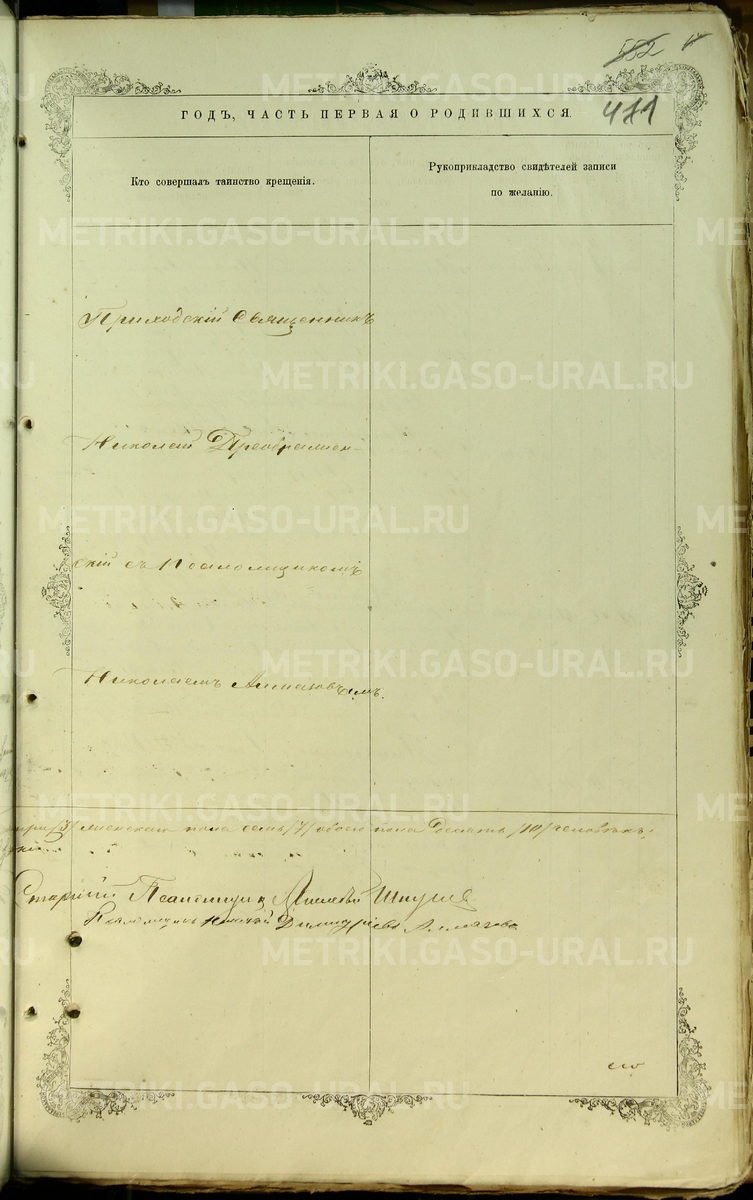 552
471
ГОДЪ, ЧАСТЬ ПЕРВАЯ О РОДИВШИХСЯ.
Кто совершалъ таинство крещенія.
Рукоприкладство свидѣтелей записи
по желанію.
Приходскій Священникъ
Николай Преображен-
скій съ Псаломщикомъ
Николаемъ Алмазовымъ.
три /3/ женскаго пола семь /7/ обоего пола десять /10/ человѣкъ.
Старшій Псаломщикъ Шишевъ
Псаломщикъ Николай Димитріевъ Алмазовъ
METRIKI.GASO-URAL.RU